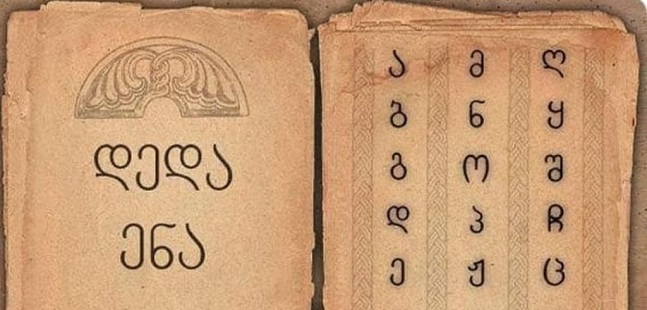 დედა
ენა
ა მ ღ
ბ ნ ყ
გ ო შ
დ პ ჩ
ე ჟ ც